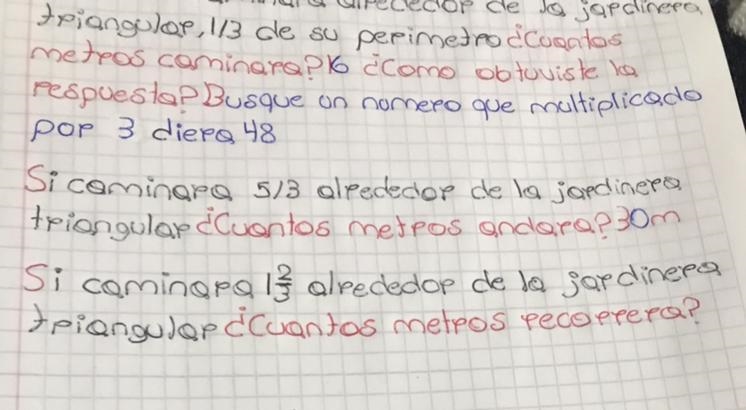 alrededor de la jardinera
triangular, 1/3 de su perimetro ¿Cuantas
metros caminara? 16 ¿Como obtuviste la
respuesta? Busque un numero que multiplicado
por 3 diera 48
Si caminara 5/3 alrededor de la jardinera
triangular ¿Cuantos metros andara? 30m
Si caminara 1 2/3 alrededor de la jardinera
triangular ¿Cuantos metros recorrera?